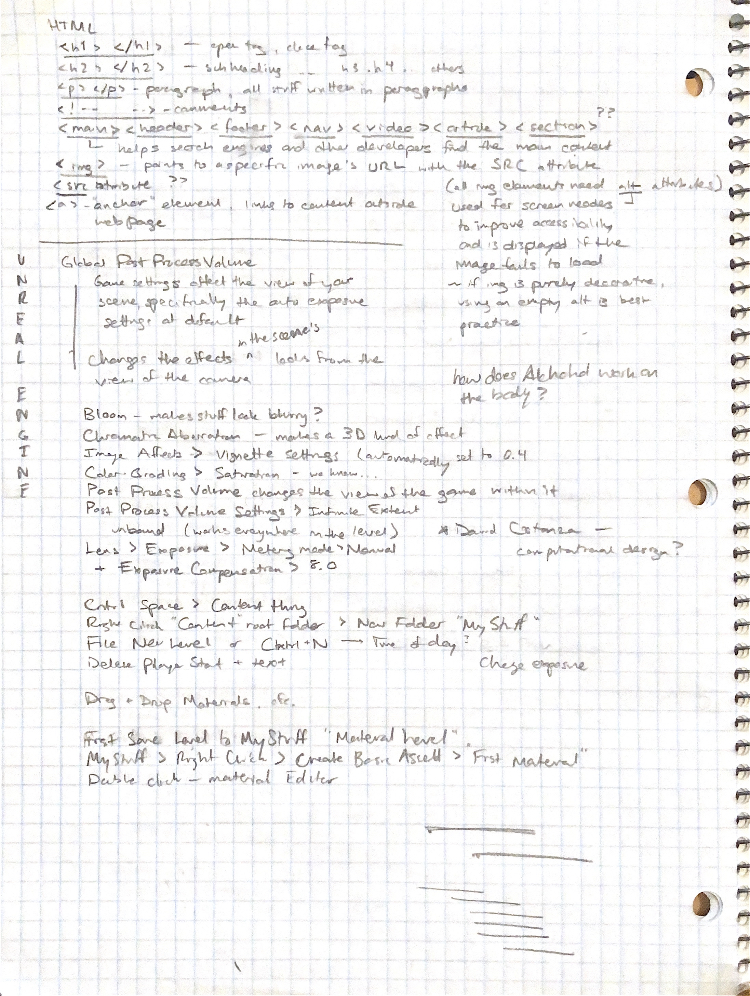 HTML
<h1> </h1> — open tag, close tag
<h2> </h2> — subheading __ h3. h4. others
<p> </p> - paragraph, all stuff written in paragraphs
<!-- --> - comments
??
<main> <header> <footer> <nav> <video> <article> <section>
helps search engines and other developers find the main content
<img> — points to a specific image's URL with the SRC attribute
<src attribute ??
(all img elements need alt attributes)
<a> - "anchor" element, links to content outside
web page
used for screen readers
to improve accessibility
and is displayed if the
image fails to load
~ if img is purely decorative,
using an empty alt is best
practice
UNREAL ENGINE
Global Post Process Volume
Game settings affect the view of your
scene, specifically the auto exposure
settings at default
in the scene's
Changes the effects ^ looks from the
view of the camera
how does Alchohol work on
the body?
Bloom - makes stuff look blurry?
Chromatic Aberration — makes a 3D kind of effect
Image Affects > Vignette settings (automatically set to 0.4
Color Grading > Saturation - we know...
Post Process Volume changes the view of the game within it
Post Process Volume Settings > Infinite Extent
unbound (works everywhere in the level)
* David —
computational design?
Lens > Exposure > Metering mode > Manual
+ Exposure Compensation > 8.0
Cntrl Space > Content thing
Right Click "Content" root folder > New Folder "My Stuff"
File New Level or Cntrl+N → Time of day?
Delete Player Start + text
Change exposure
Drag + Drop Materials, etc.
First Save Level to MyStuff "Material Level".
MyStuff > Right Click > Create Basic Assett > First Material"
Double click — material Editor